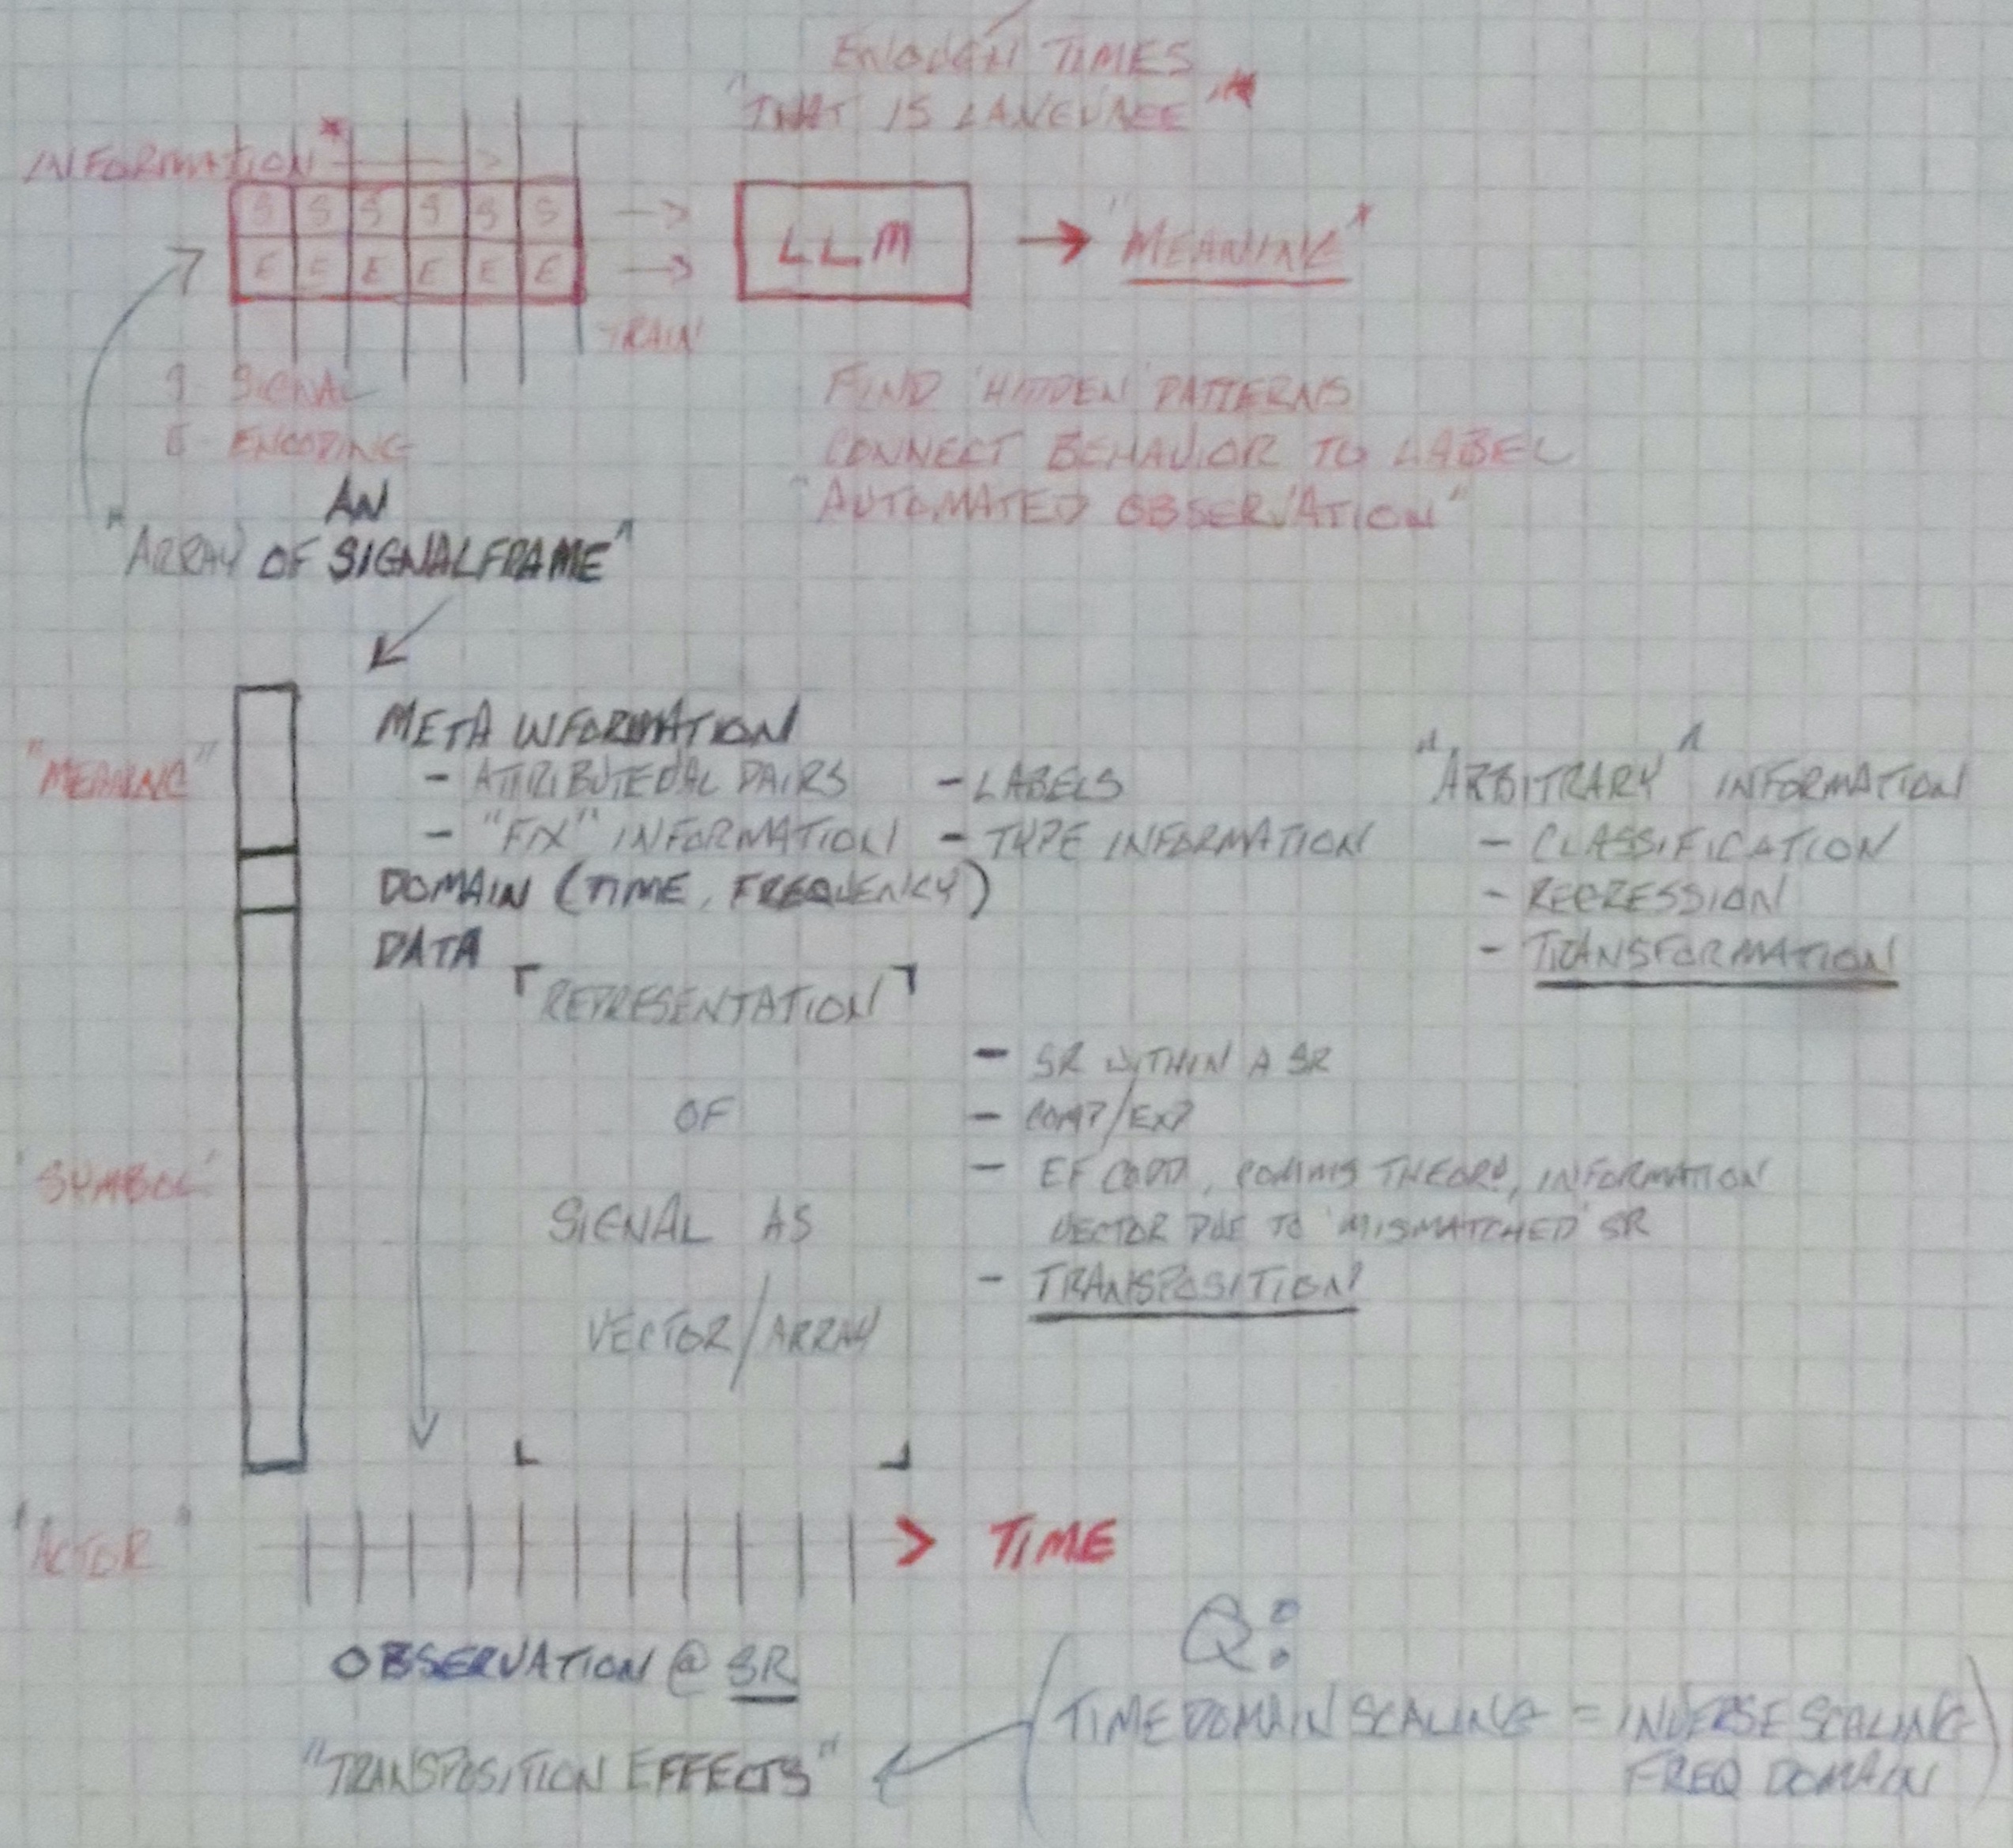 ENOUGH TIMES
"THAT IS LANGUAGE"*
INFORMATION*
S S S S S S
E E E E E E
LLM
"MEANING"*
TRAIN
S - SIGNAL
E - ENCODING
FIND 'HIDDEN' PATTERNS
CONNECT BEHAVIOR TO LABEL
"AUTOMATED OBSERVATION"
AN
"ARRAY OF SIGNALFRAME"
"MEANING"
META INFORMATION
- ATTRIBUTE VAL PAIRS - LABELS
- "FIX" INFORMATION - TYPE INFORMATION
DOMAIN (TIME, FREQUENCY)
DATA
"ARBITRARY" INFORMATION
- CLASSIFICATION
- REGRESSION
- TRANSFORMATION
REPRESENTATION
OF
SIGNAL AS
VECTOR/ARRAY
- SR WITHIN A SR
- COMP/EXP
- EF CODD, COMMS THEORY, INFORMATION
VECTOR DUE TO 'MISMATCHED' SR
- TRANSPOSITION
'SYMBOL'
"ACTOR"
> TIME
OBSERVATION @ SR
"TRANSPOSITION EFFECTS"
Q:
(TIME DOMAIN SCALING = INVERSE SCALING
FREQ DOMAIN)